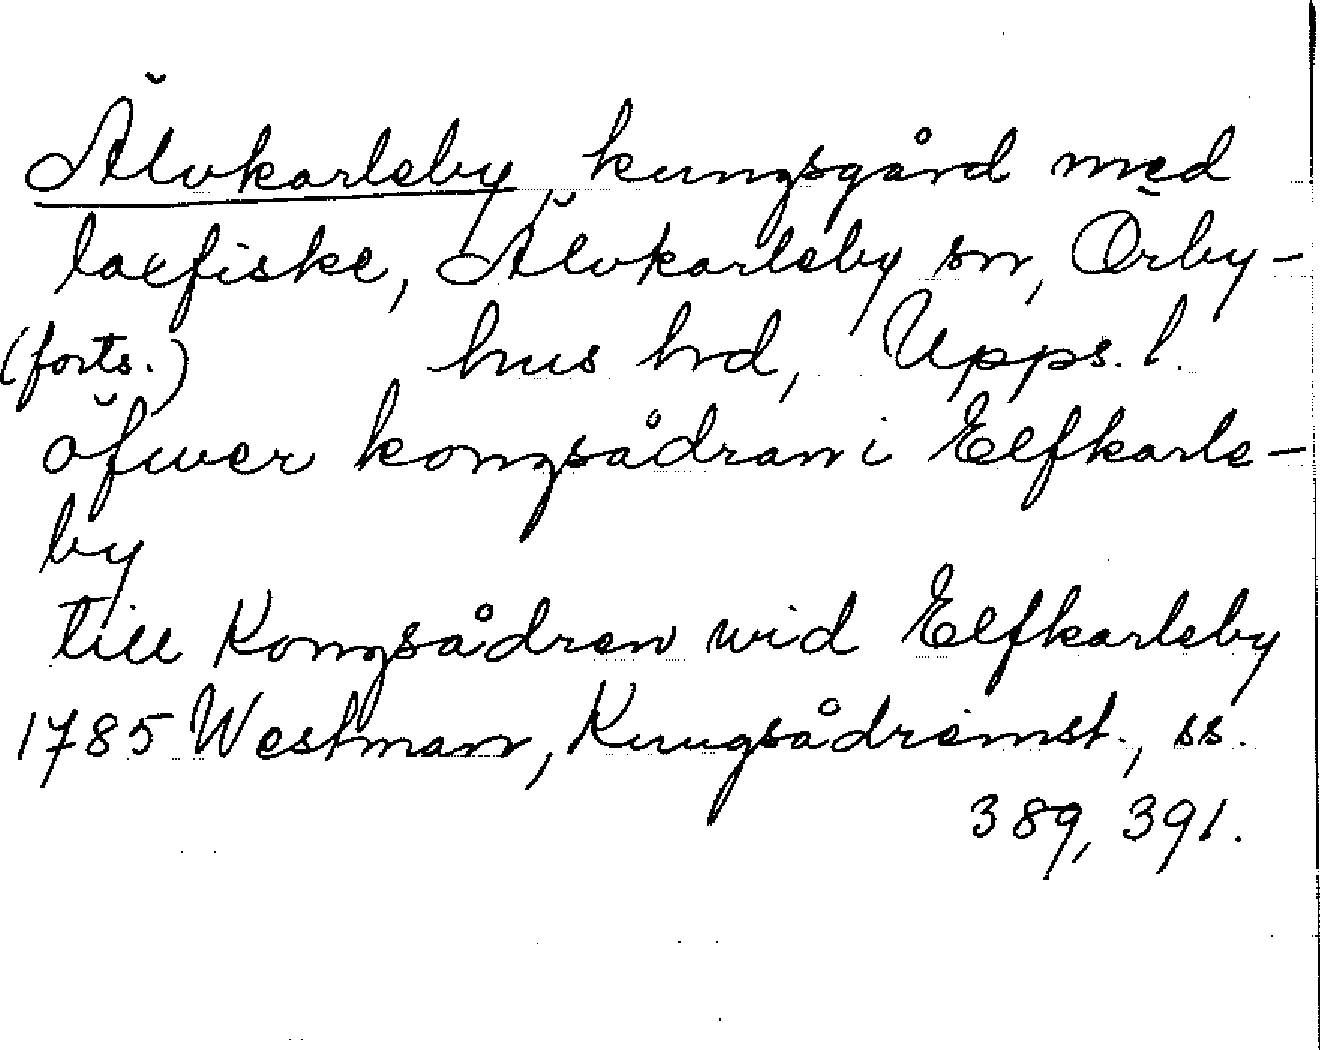 Älvkarleby, kungsgård med
laxfiske, Älvkarleby sn, Örby-
(forts.) hus hd, Upps. l.
öfwer kongsådran i Elfkarle-
by
till Kongsådren wid Elfkarleby
1785 Westman, Kungsådreinst., ss.
389, 391.